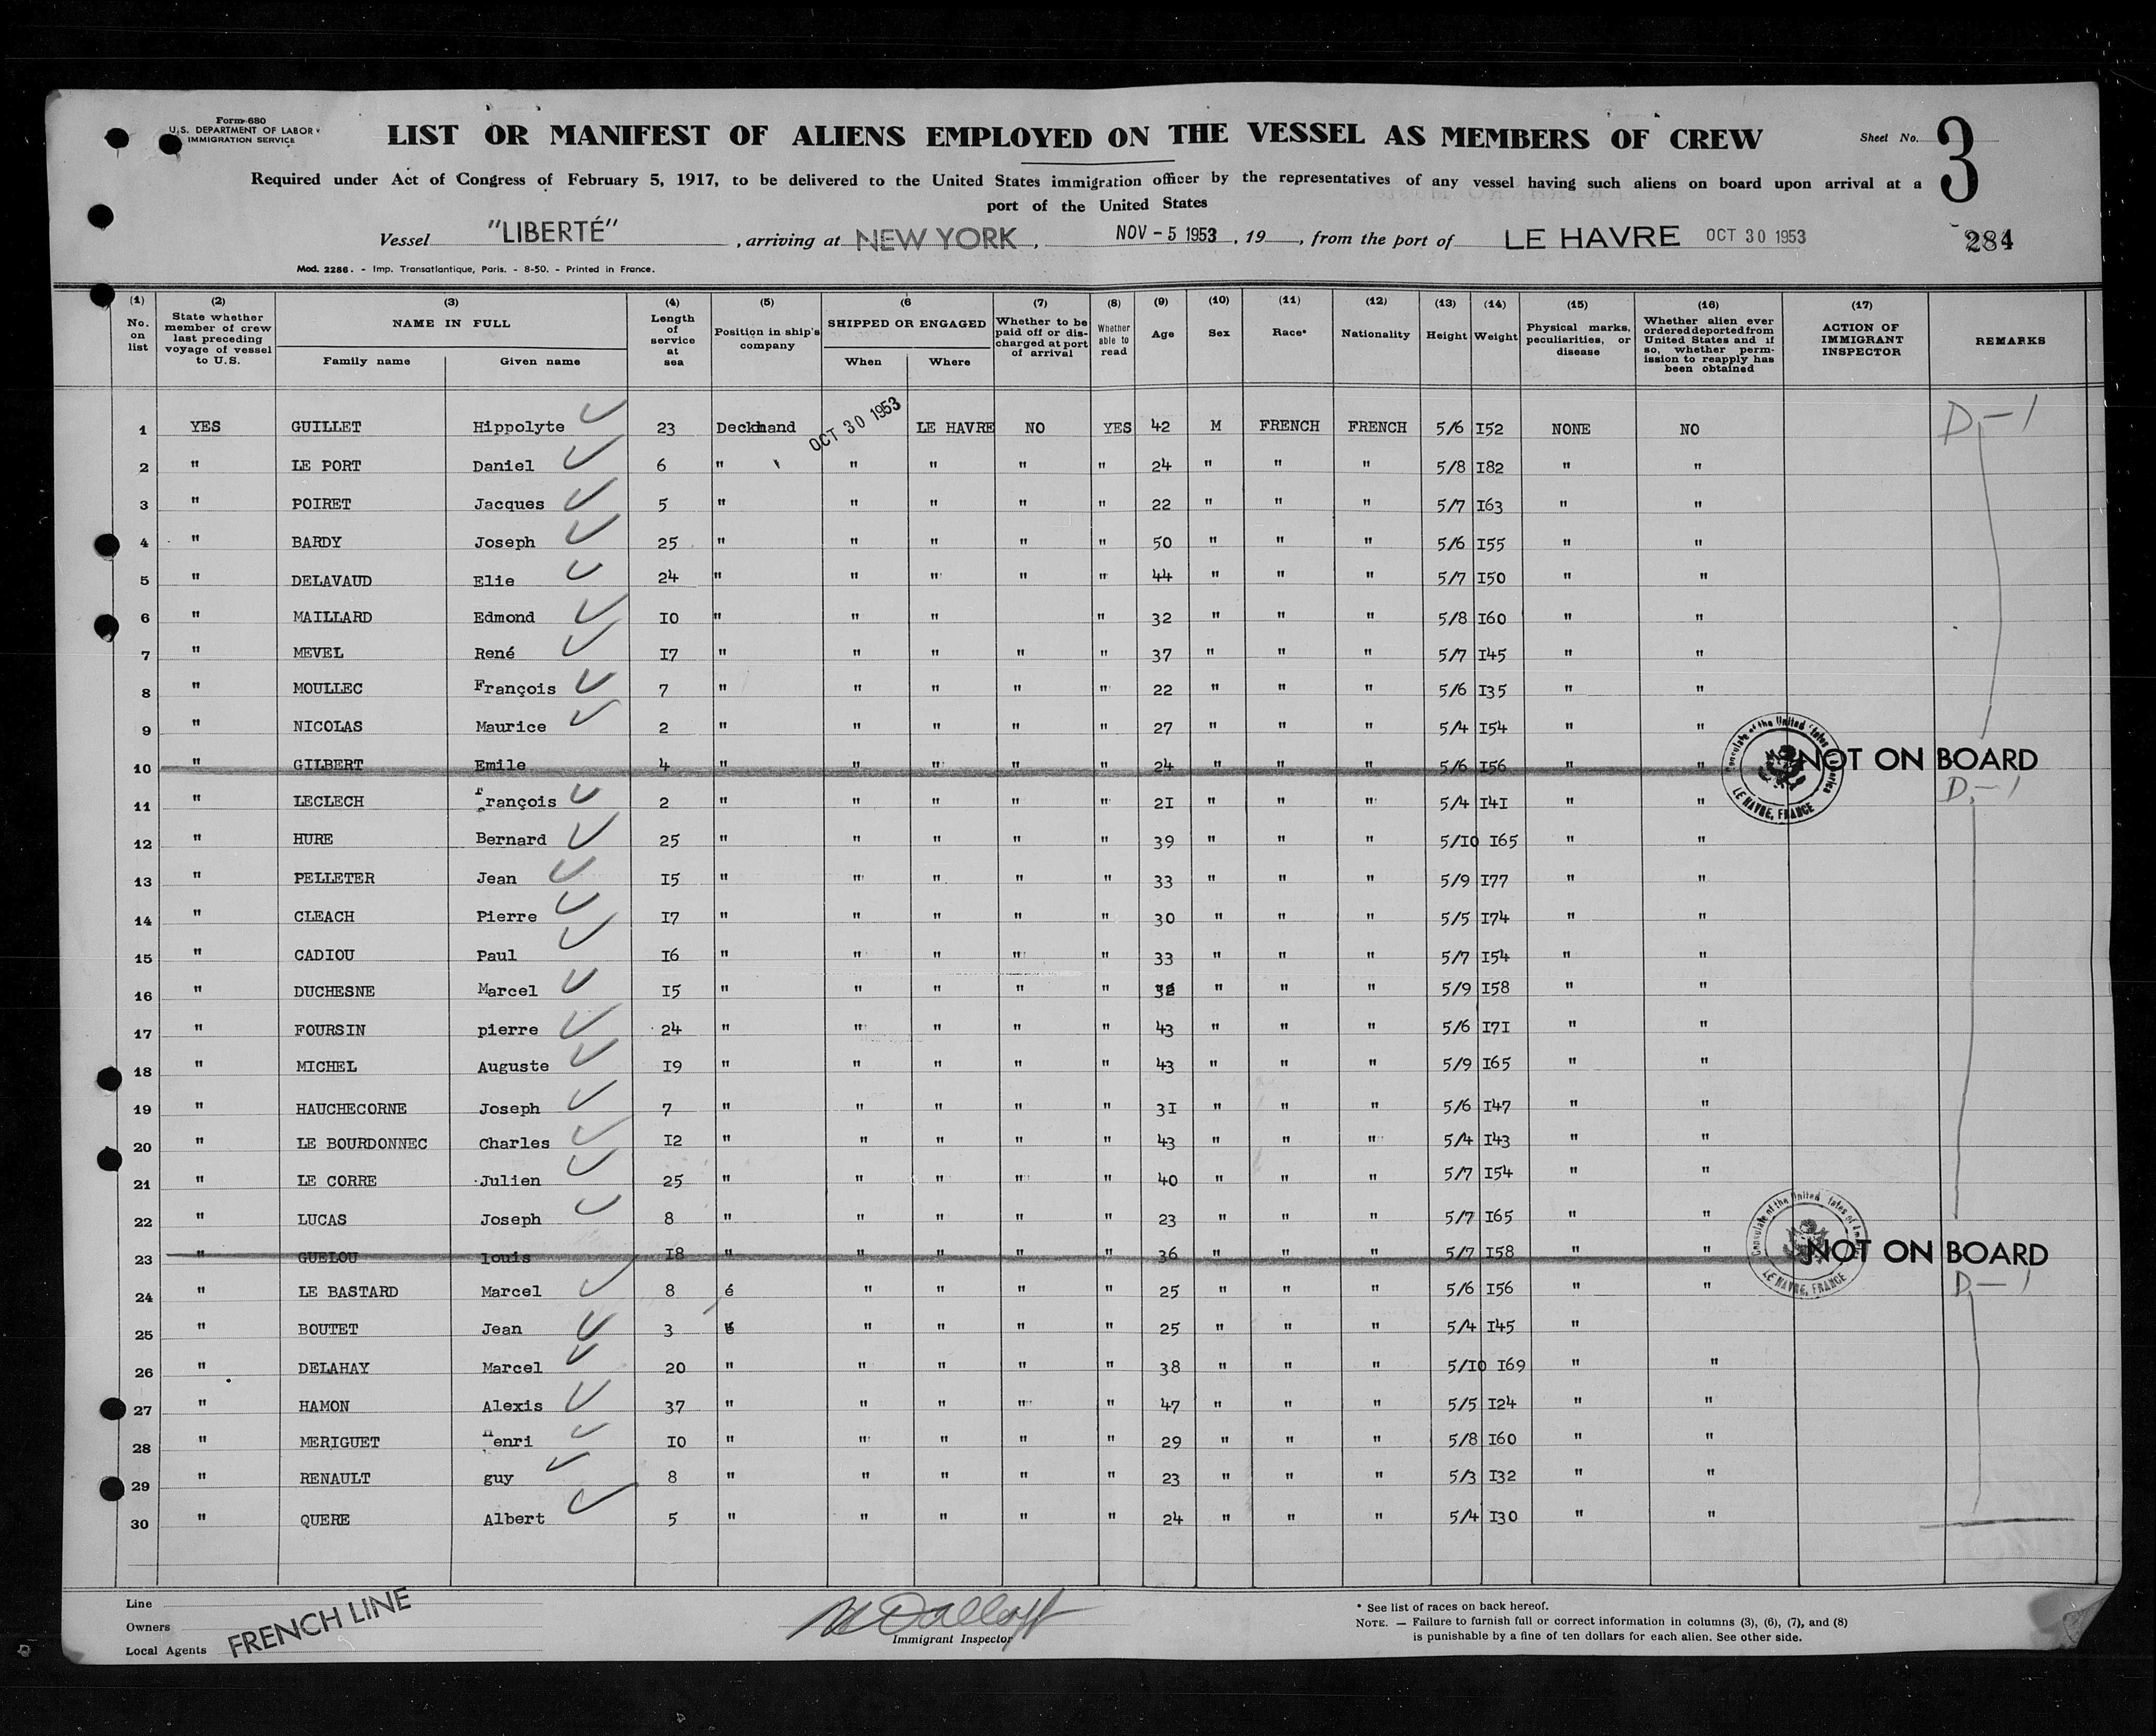 Form 680
U.S. DEPARTMENT OF LABOR
IMMIGRATION SERVICE
LIST OR MANIFEST OF ALIENS EMPLOYED ON THE VESSEL AS MEMBERS OF CREW
Sheet No. 3
Required under Act of Congress of February 5, 1917, to be delivered to the United States immigration officer by the representatives of any vessel having such aliens on board upon arrival at a
port of the United States
Vessel "LIBERTÉ", arriving at NEW YORK, NOV - 5 1953, 19, from the port of LE HAVRE OCT 30 1953
284
Mod. 2286. - Imp. Transatlantique, Paris. - 8-50. - Printed in France.
(1) No. on list
(2) State whether member of crew last preceding voyage of vessel to U.S.
(3) NAME IN FULL Family name Given name
(4) Length of service at sea
(5) Position in ship's company
(6 SHIPPED OR ENGAGED When Where
(7) Whether to be paid off or discharged at port of arrival
(8) Whether able to read
(9) Age
(10) Sex
(11) Race*
(12) Nationality
(13) Height
(14) Weight
(15) Physical marks, peculiarities, or disease
(16) Whether alien ever ordered deported from United States and if so, whether permission to reapply has been obtained
(17) ACTION OF IMMIGRANT INSPECTOR
REMARKS
1 YES GUILLET Hippolyte 23 Deckhand OCT 30 1953 LE HAVRE NO YES 42 M FRENCH FRENCH 5/6 I52 NONE NO D-1
2 " LE PORT Daniel 6 " " " " " 24 " " " 5/8 I82 " "
3 " POIRET Jacques 5 " " " " " 22 " " " 5/7 I63 " "
4 " BARDY Joseph 25 " " " " " 50 " " " 5/6 I55 " "
5 " DELAVAUD Elie 24 " " " " " 44 " " " 5/7 I50 " "
6 " MAILLARD Edmond I0 " " " " 32 " " " 5/8 I60 " "
7 " MEVEL René I7 " " " " " 37 " " " 5/7 I45 " "
8 " MOULLEC François 7 " " " " " 22 " " " 5/6 I35 " "
9 " NICOLAS Maurice 2 " " " " " 27 " " " 5/4 I54 " "
10 " GILBERT Emile 4 " " " " " 24 " " " 5/6 I56 " " NOT ON BOARD
Consulate of the United States of America LE HAVRE, FRANCE
11 " LECLECH François 2 " " " " " 2I " " " 5/4 I4I " " D.-1
12 " HURE Bernard 25 " " " " " 39 " " " 5/I0 I65 " "
13 " PELLETER Jean I5 " " " " " 33 " " " 5/9 I77 " "
14 " CLEACH Pierre I7 " " " " " 30 " " " 5/5 I74 " "
15 " CADIOU Paul I6 " " " " " 33 " " " 5/7 I54 " "
16 " DUCHESNE Marcel I5 " " " " " " " " 5/9 I58 " "
17 " FOURSIN pierre 24 " " " " " 43 " " " 5/6 I7I " "
18 " MICHEL Auguste I9 " " " " " 43 " " " 5/9 I65 " "
19 " HAUCHECORNE Joseph 7 " " " " " 3I " " " 5/6 I47 " "
20 " LE BOURDONNEC Charles I2 " " " " " 43 " " " 5/4 I43 " "
21 " LE CORRE Julien 25 " " " " " 40 " " " 5/7 I54 " "
22 " LUCAS Joseph 8 " " " " " 23 " " " 5/7 I65 " "
23 " GUELOU louis I8 " " " " " 36 " " " 5/7 I58 " " NOT ON BOARD
Consulate of the United States of America LE HAVRE, FRANCE
24 " LE BASTARD Marcel 8 é " " " " 25 " " " 5/6 I56 " " D-1
25 " BOUTET Jean 3 " " " " 25 " " " 5/4 I45 "
26 " DELAHAY Marcel 20 " " " " " 38 " " " 5/I0 I69 " "
27 " HAMON Alexis 37 " " " " " 47 " " " 5/5 I24 " "
28 " MERIGUET Henri I0 " " " " " 29 " " " 5/8 I60 " "
29 " RENAULT guy 8 " " " " " 23 " " " 5/3 I32 " "
30 " QUERE Albert 5 " " " " " 24 " " " 5/4 I30 " "
Line
Owners
Local Agents
FRENCH LINE
Immigrant Inspector
* See list of races on back hereof.
NOTE. — Failure to furnish full or correct information in columns (3), (6), (7), and (8)
is punishable by a fine of ten dollars for each alien. See other side.